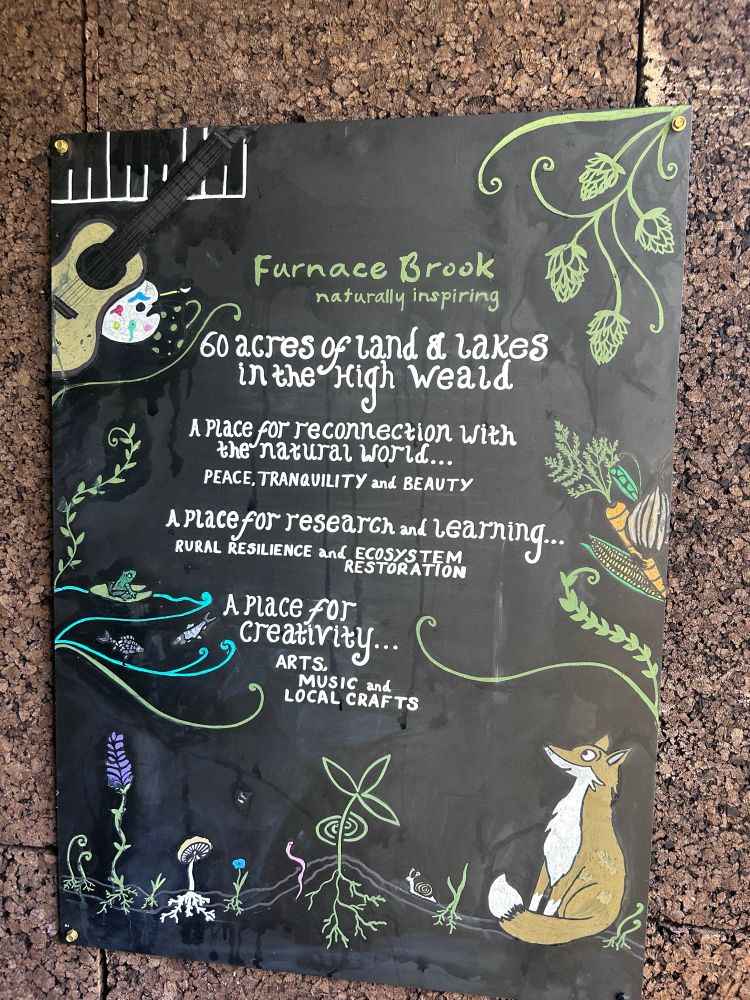 Furnace Brook
naturally inspiring
60 acres of land & lakes
in the High Weald
A Place for reconnection with
the natural world...
PEACE, TRANQUILITY and BEAUTY
A Place for research and learning...
RURAL RESILIENCE and ECOSYSTEM
RESTORATION
A Place for
creativity...
ARTS,
MUSIC and
LOCAL CRAFTS